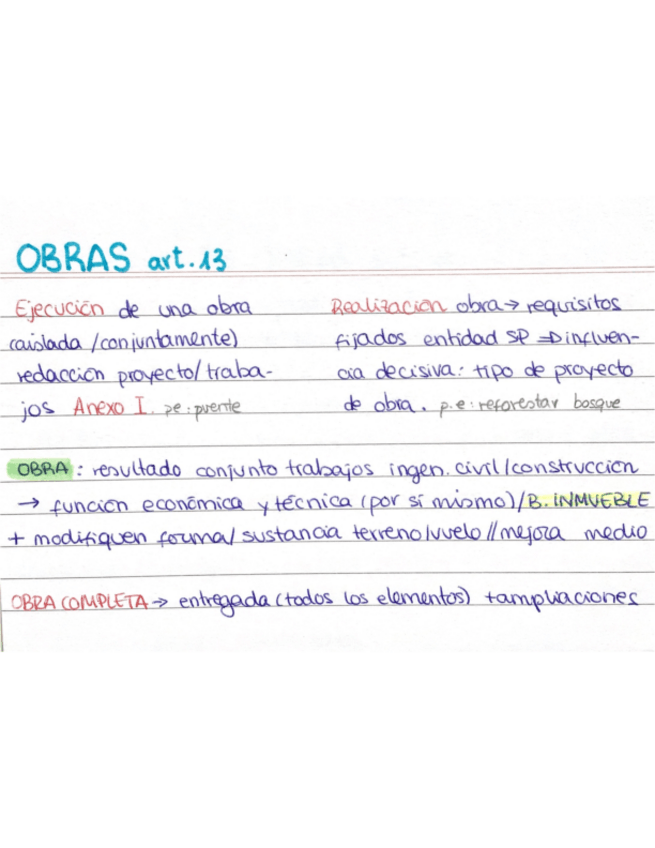 OBRAS art.13
Ejecución de una obra
(aislada/conjuntamente)
redacción proyecto/traba-
jos Anexo I. pe: puente
Realización obra → requisitos
fijados entidad SP ⇒ influen-
cia decisiva: tipo de proyecto
de obra. p.e: reforestar bosque
OBRA: resultado conjunto trabajos ingen. civil/construcción
→ función económica y técnica (por sí mismo)/B. INMUEBLE
+ modifiquen forma/sustancia terreno/vuelo//mejora medio
OBRA COMPLETA → entregada (todos los elementos) + ampliaciones